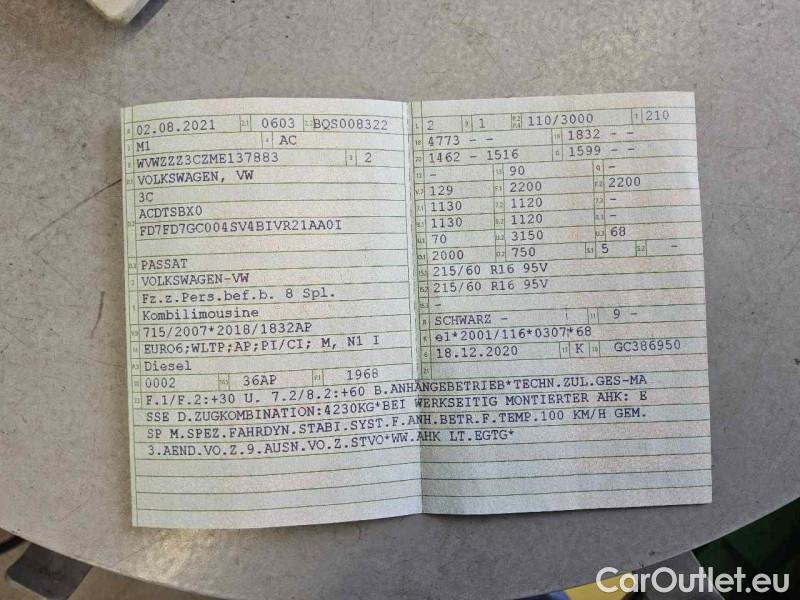 02.08.2021 0603 BQS008322
M1 AC
WVWZZZ3CZME137883 2
VOLKSWAGEN, VW
3C
ACDTSBX0
FD7FD7GC004SV4BIVR21AA0I
PASSAT
VOLKSWAGEN-VW
Fz.z.Pers.bef.b. 8 Spl.
Kombilimousine
715/2007*2018/1832AP
EURO6;WLTP;AP;PI/CI; M, N1 I
Diesel
0002 36AP 1968
2 1 110/3000 210
4773 - - 1832 - -
1462 - 1516 1599 - -
- 90 -
129 2200 2200
1130 1120 -
1130 1120 -
70 3150 68
2000 750 5 -
215/60 R16 95V
215/60 R16 95V
-
SCHWARZ - 9 -
e1*2001/116*0307*68
18.12.2020 K GC386950
F.1/F.2:+30 U. 7.2/8.2:+60 B.ANHÄNGEBETRIEB*TECHN.ZUL.GES-MA
SSE D.ZUGKOMBINATION:4230KG*BEI WERKSEITIG MONTIERTER AHK: E
SP M.SPEZ.FAHRDYN.STABI.SYST.F.ANH.BETR.F.TEMP.100 KM/H GEM.
3.AEND.VO.Z.9.AUSN.VO.Z.STVO*WW.AHK LT.EGTG*
CarOutlet.eu